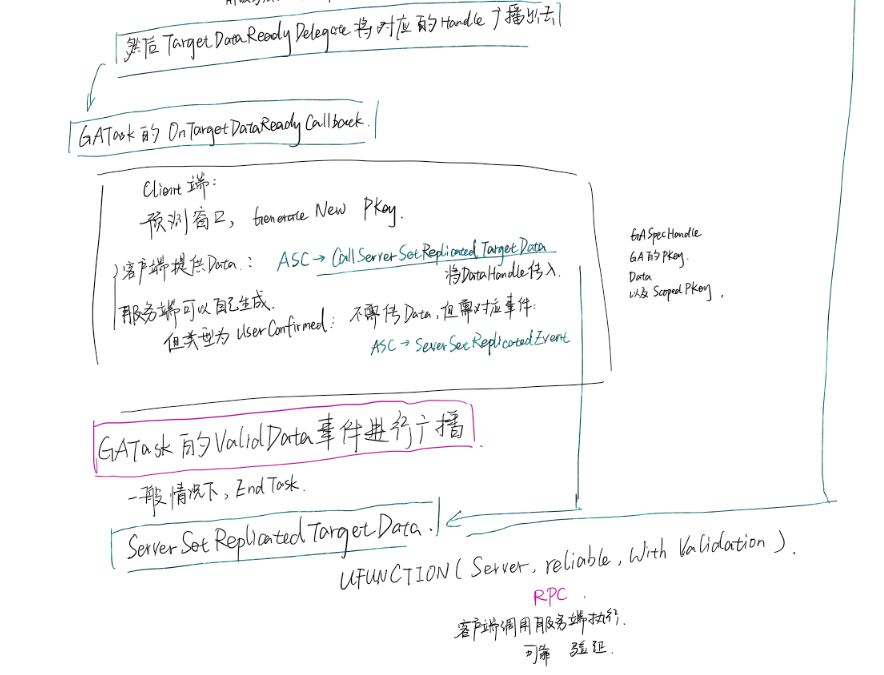 然后 TargetDataReadyDelegate 将对应的Handle广播出去
GATask的 OnTargetDataReadyCallback.
Client 端:
预测窗口, Generate New PKey.
客户端提供Data: ASC→CallServerSetReplicatedTargetData
将DataHandle传入.
服务端可以自己生成.
但类型为 UserConfirmed: 不需传Data, 但需对应事件:
ASC→ServerSetReplicatedEvent
GASpecHandle
GA的PKey.
Data
以及ScopedPKey.
GATask的ValidData事件进行广播.
一般情况下, EndTask.
ServerSetReplicatedTargetData.
UFUNCTION(Server, reliable, With Validation).
RPC.
客户端调用服务端执行.
可靠 验证.